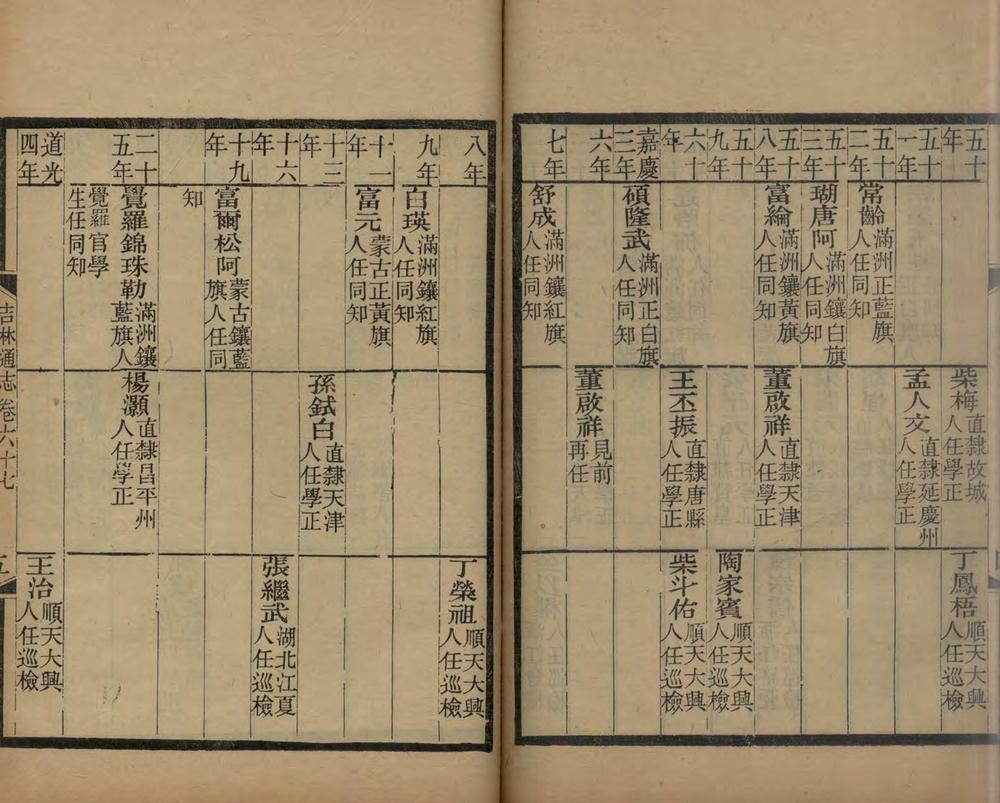 五十年
柴梅直隸故城人任學正
丁鳳梧順天大興人任巡檢
五十一年
孟人文直隸延慶州人任學正
五十二年
常齡滿洲正藍旗人任同知
五十三年
瑚唐阿滿洲鑲白旗人任同知
五十八年
富綸滿洲鑲黃旗人任同知
董啟祥直隸天津人任學正
五十九年
陶家賓順天大興人任巡檢
六十年
王丕振直隸唐縣人任學正
柴斗佑順天大興人任巡檢
嘉慶三年
碩隆武滿洲正白旗人任同知
六年
董啟祥見前再任
七年
舒成滿洲鑲紅旗人任同知
八年
丁榮祖順天大興人任巡檢
九年
白瑛滿洲鑲紅旗人任同知
十一年
富元蒙古正黃旗人任同知
十三年
孫鉽白直隸天津人任學正
十六年
張繼武湖北江夏人任巡檢
十九年
富爾松阿蒙古鑲藍旗人任同
知
二十五年
覺羅錦珠勒滿洲鑲藍旗人
覺羅官學生任同知
楊灝直隸昌平州人任學正
道光四年
王治順天大興人任巡檢
吉林通志卷六十七
五